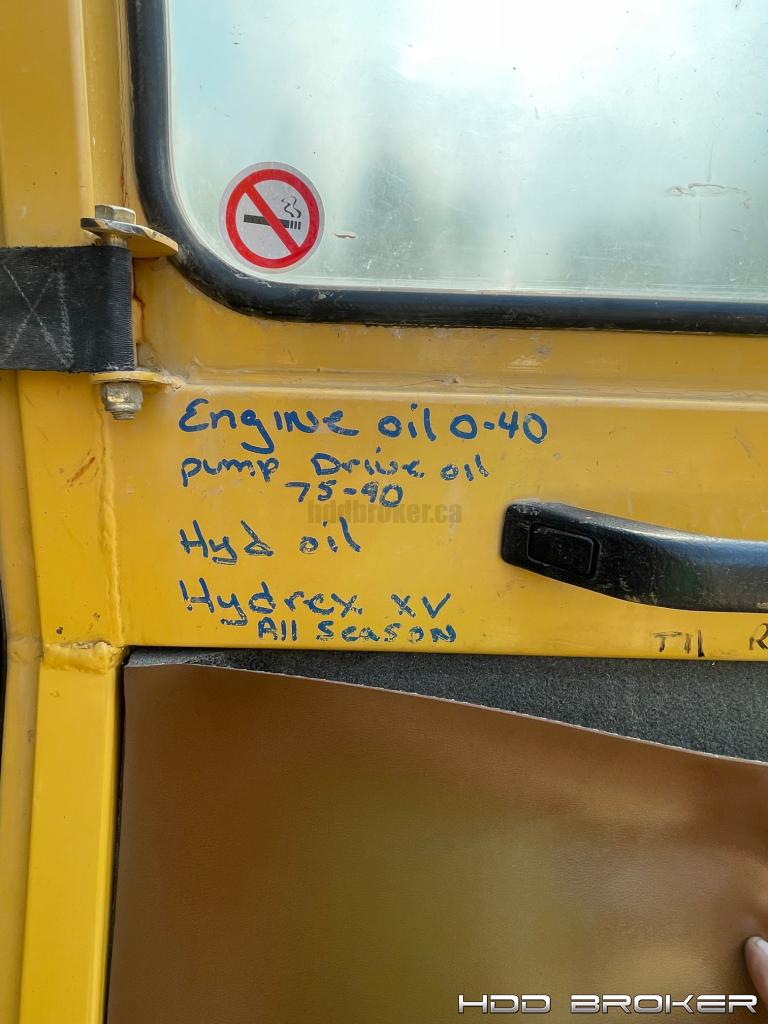 Engine oil 0-40
pump Drive oil
75-90
hddbroker.ca
Hyd oil
Hydrex XV
All Season
HDD BROKER